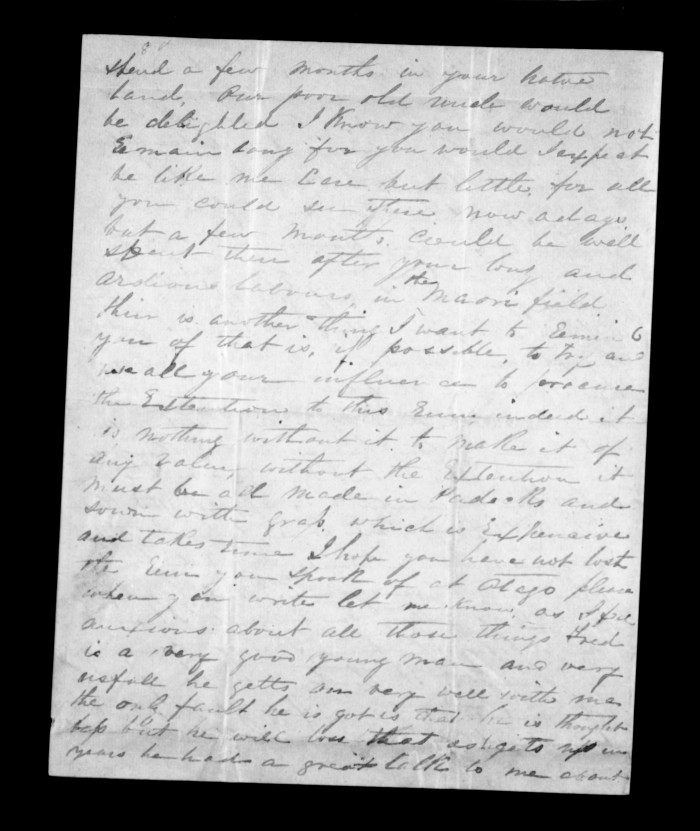 spend a few months in your native
land, Our poor old uncle would
be delighted I know you would not
Remain long for you would I expect
be like me Care but little for all
you could see there now adays
but a few months could be well
spent there after your long and
ardious Labours, in the Maori field
their is another thing I want to Remin
you of that is, if possible, to try and
use all your influence to procure
the Extention to this Run, indeed it
is nothing without it to make it of
any value, without the Extention it
must be all made in Padocks and
sown with grass which is Expensive
and takes time I hope you have not lost
the Run you spook of at Otago please
when you write let me know as I feel
anxious about all those things Fred
is a very good young man and very
usfull he getts on very well with me
the only fault he is got is that he is thought
less but he will loss that as he gets up in
years he had a great talk to me about